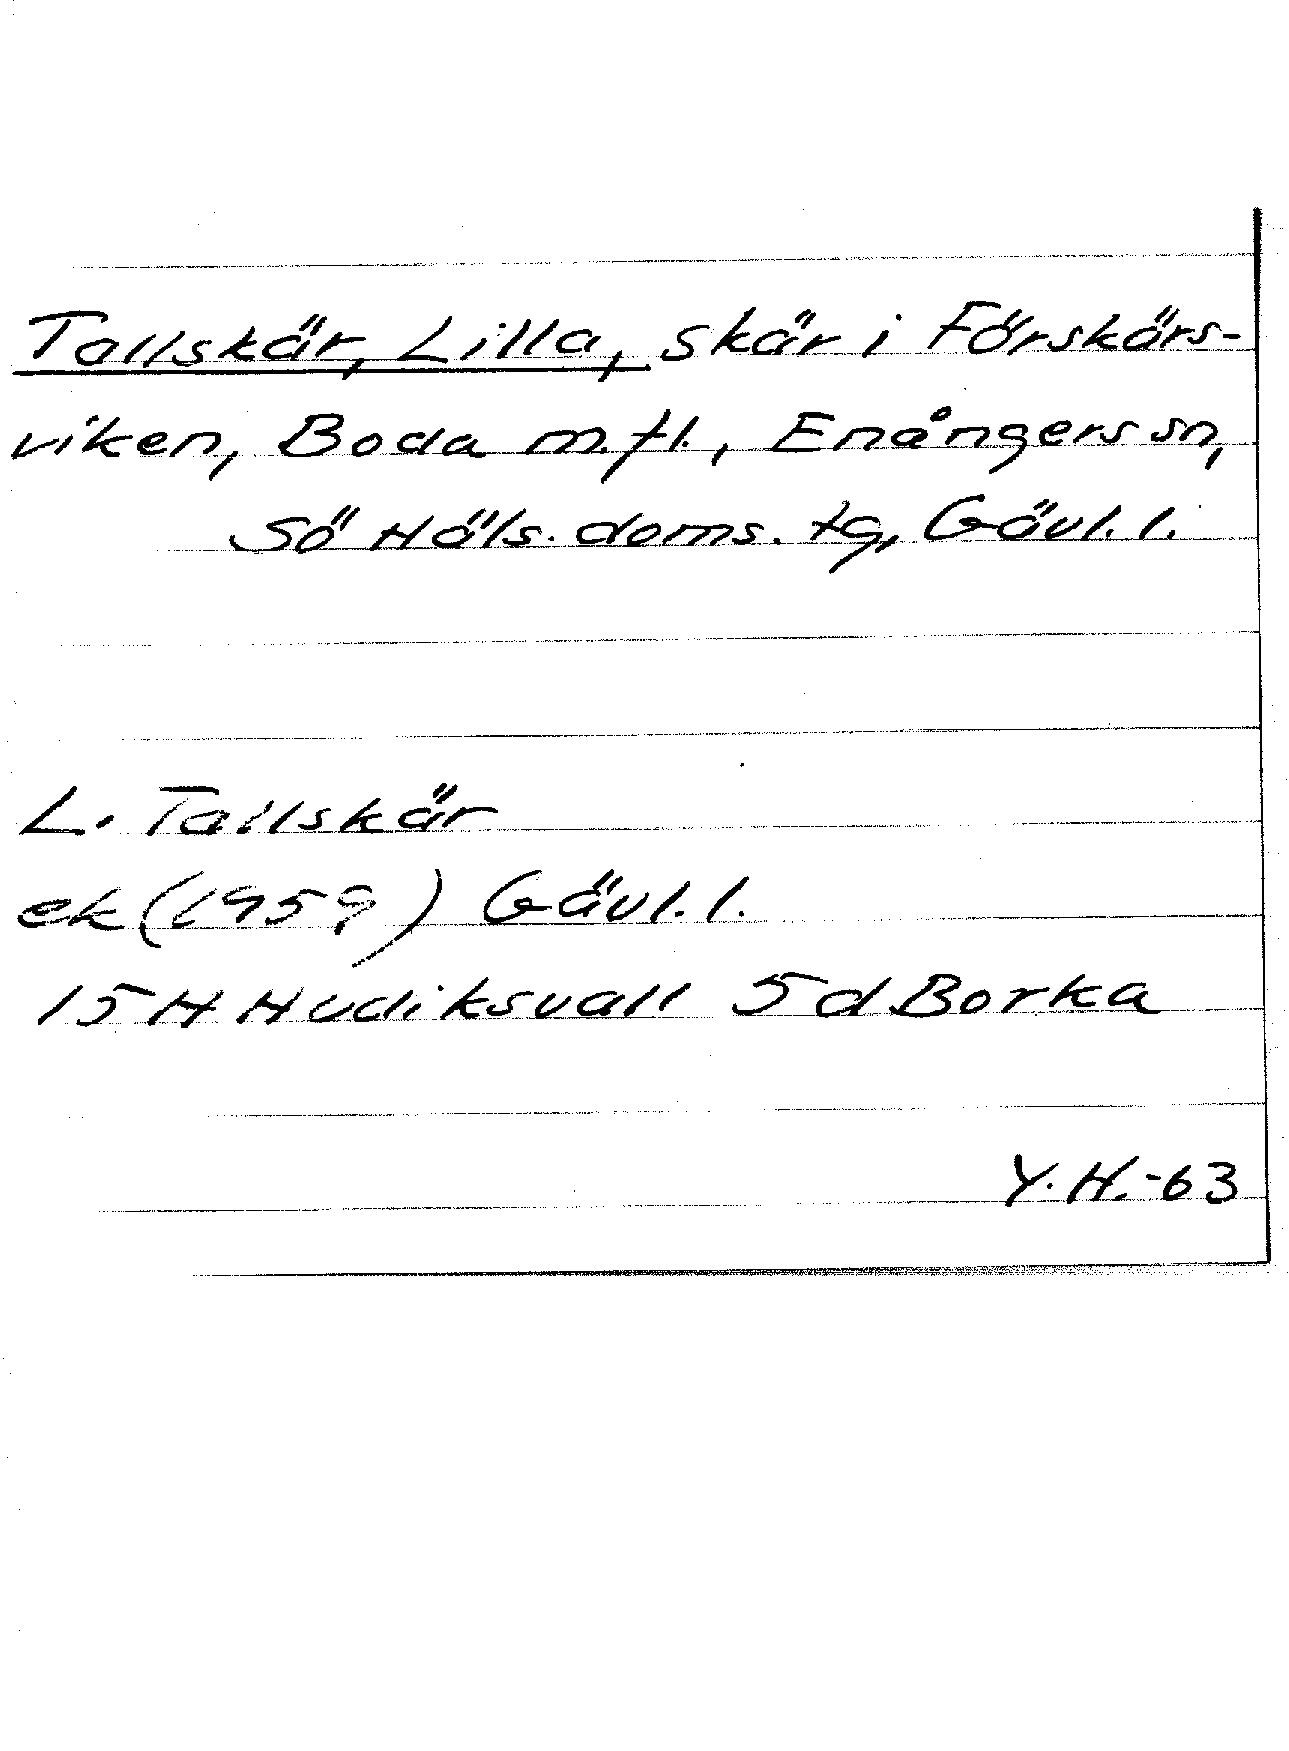 Tallskär, Lilla, skär i Förskärs-
viken, Boda m.fl., Enångers sn,
Sö Häls. doms. tg, Gävl. l.
L. Tallskär
ek (1959) Gävl. l.
15 H Hudiksvall 5 d Borka
Y. H. -63